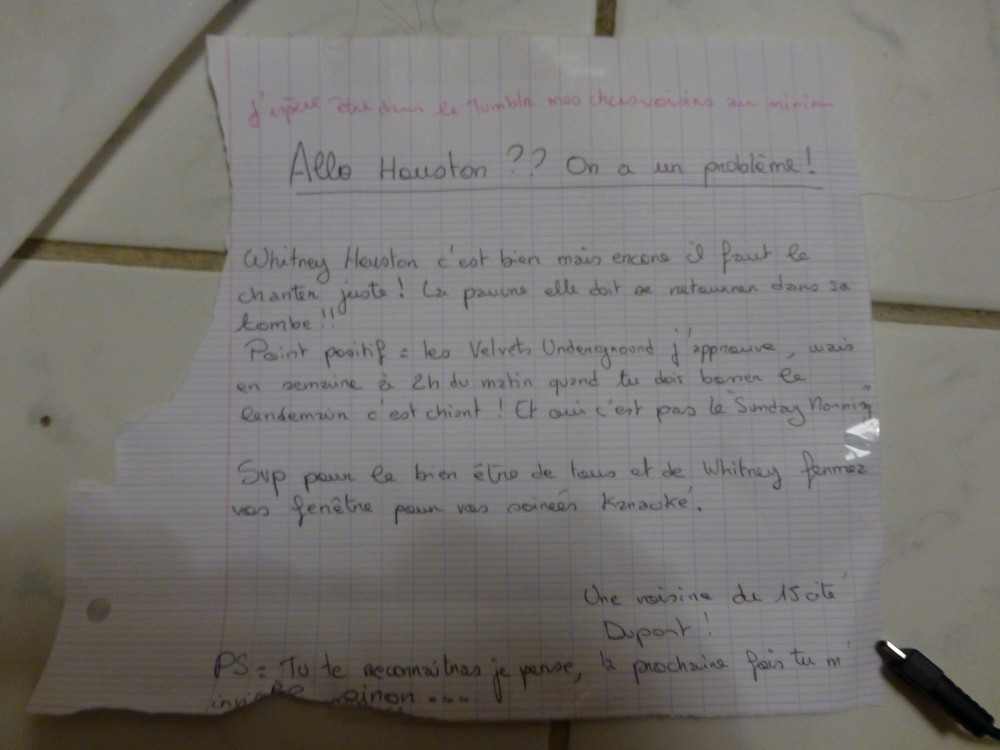 J'espère être dans le Tumblr mes chers voisins au minim
Allo Houston ?? On a un problème !
Whitney Houston c'est bien mais encore il faut le
chanter juste ! La pauvre elle doit se retourner dans sa
tombe !!
Point positif : les Velvets Underground j'approuve, mais
en semaine à 2h du matin quand tu dois bosser le
lendemain c'est chiant ! Et oui c'est pas le "Sunday Morning"
Svp pour le bien être de tous et de Whitney fermez
vos fenêtre pour vos soirées Karaoké.
Une voisine du 15 cité
Dupont !
PS : Tu te reconnaîtras je pense, la prochaine fois tu m'
invites sinon ...